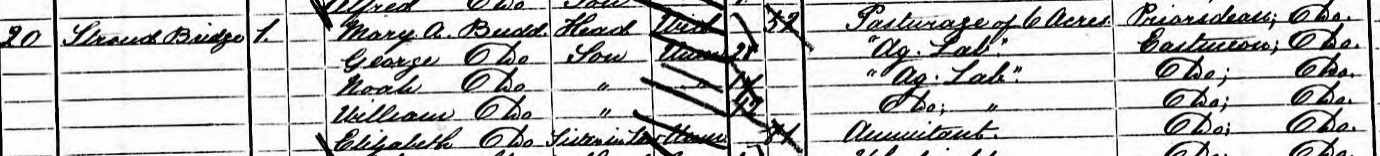 Alfred Do Son
20 Stroud Bridge 1. Mary A. Budd Head Wid 52 Pasturage of 6 Acres Priorsdean; Do.
George Do Son Unm "Ag. Lab" Do.
Noah Do " " "Ag. Lab". Do; Do.
William Do " " Do; " Do; Do.
Elizabeth Do Unm Annuitant. Do; Do.